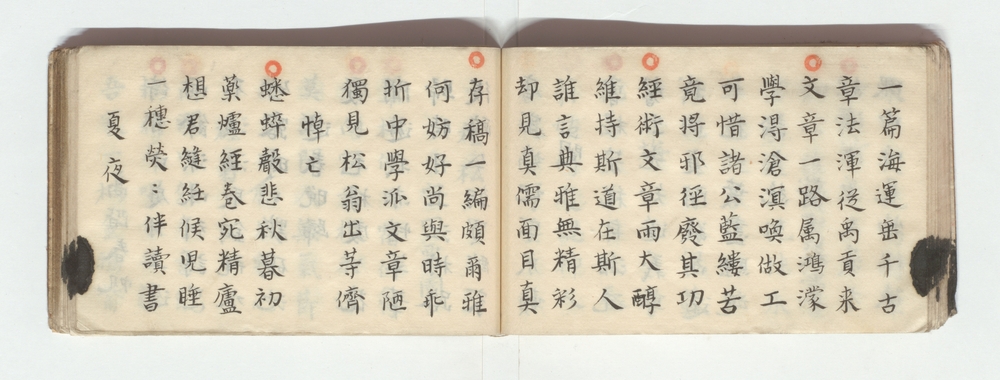 一篇海運垂千古
章法渾從禹貢来
文章一路属鴻濛
學淂滄溟喚做工
可惜諸公藍縷苦
竟將邪徑廢其功
經術文章兩大醇
維持斯道在斯人
誰言典雅無精彩
却見真儒面目真
存稿一編頗爾雅
何妨好尚與時乖
折中學泒文章陋
獨見松翁出等儕
悼亡
蟋蟀聲悲秋暮初
藥爐經卷宛精廬
想君縫紝候児睡
一穗熒〻伴讀書
夏夜